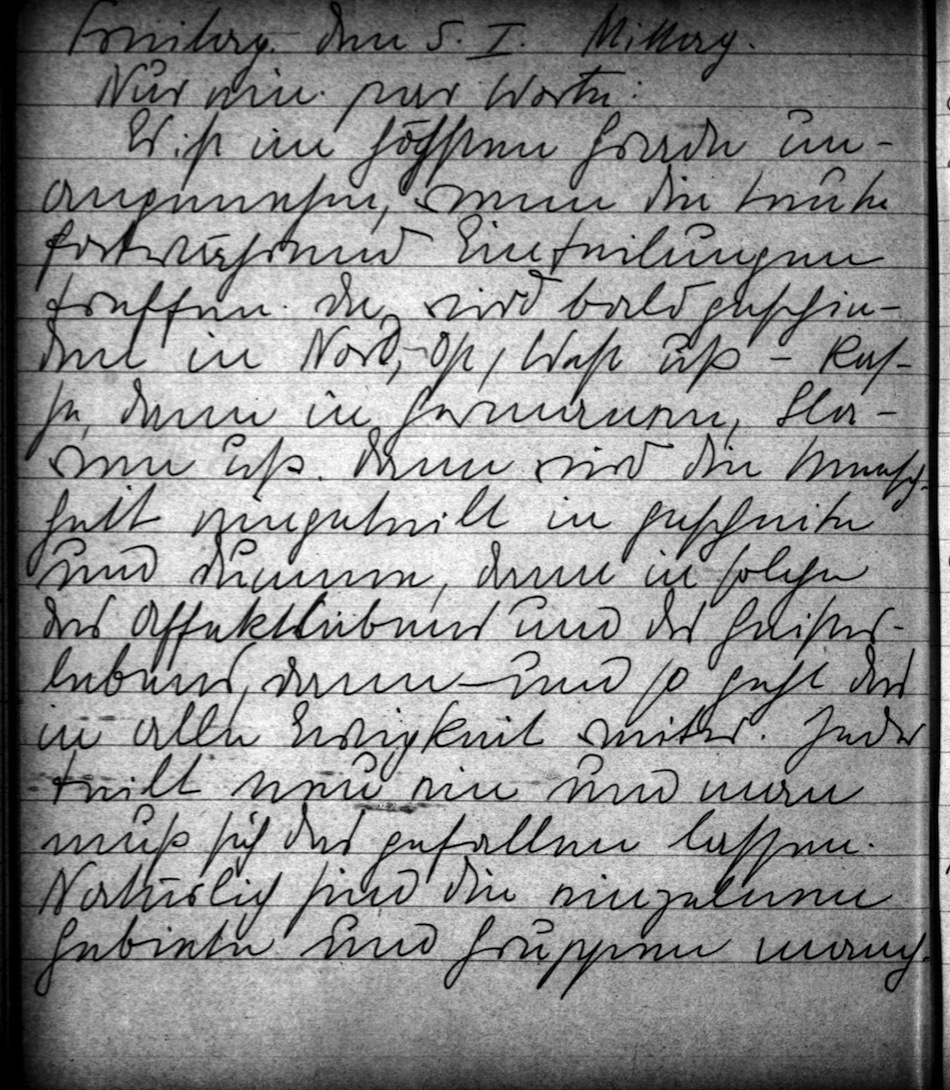 Freiberg. den 5. I. Mittag.
Nur ein paar Worte:
Es ist im höchsten Grade un-
angenehm, wenn die Leute
fortwährend Einteilungen
treffen. Da wird bald geschie-
den in Nord, Ost, West usw - Ras-
se, dann in Germanen, Sla-
wen usw. Dann wird die Mensch-
heit eingeteilt in gescheite
und dumme, dann in solche
des Affektlebens und des Geistes-
lebens, dann - und so geht das
in alle Ewigkeit weiter. Jeder
teilt neu ein und man
muß sich das gefallen lassen.
Natürlich sind die einzelnen
Gebiete und Gruppen manch-